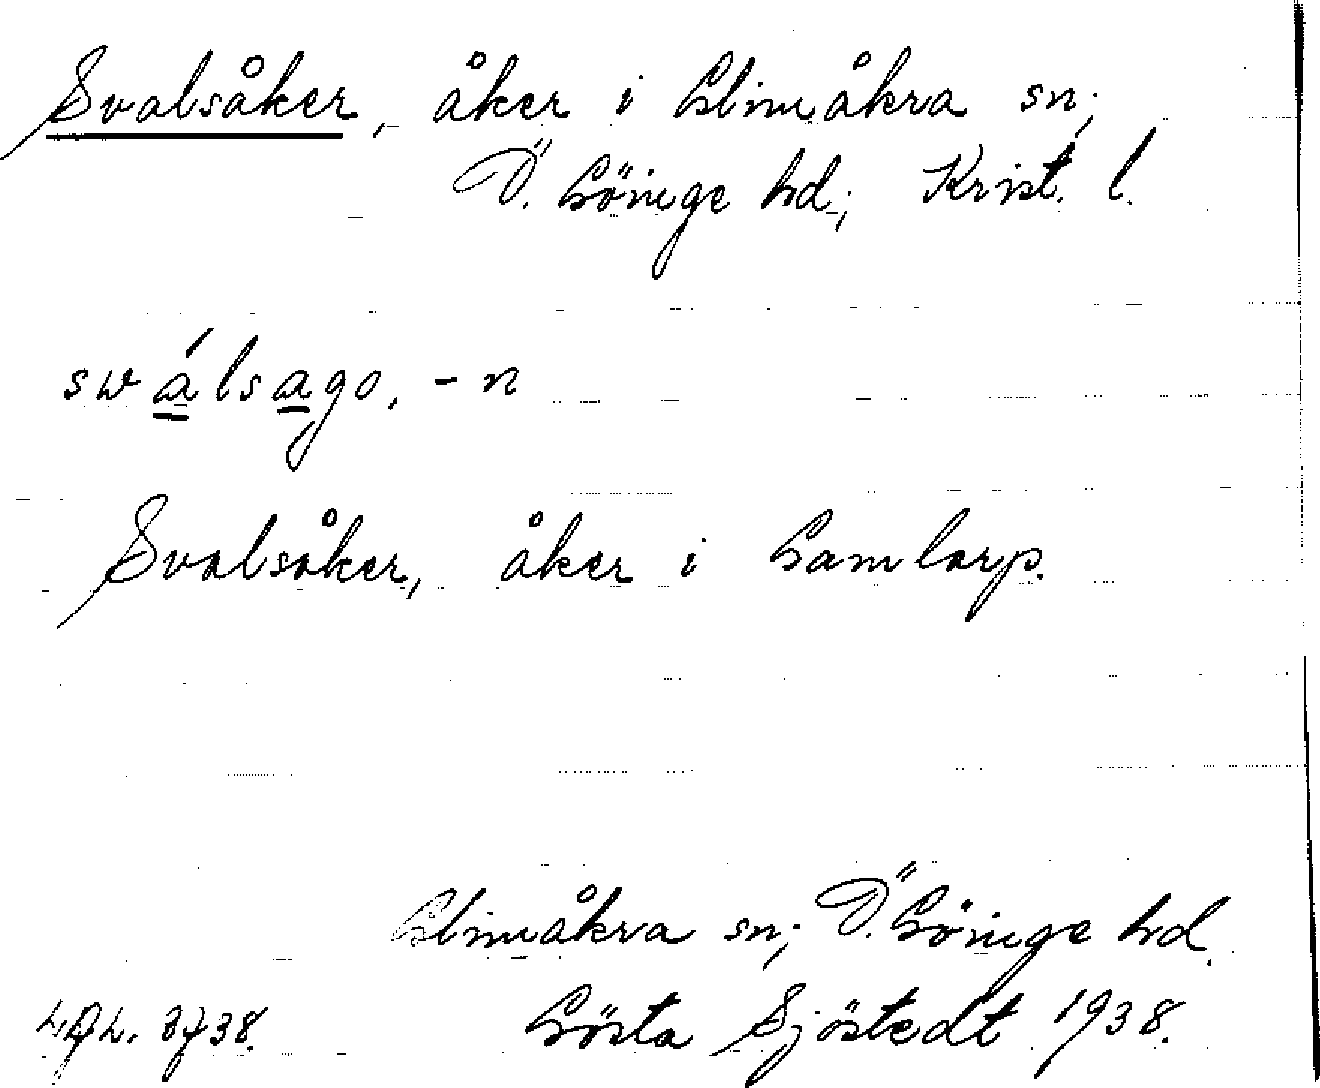 Svalsåker, åker i Glimåkra sn;
Ö. Göinge hd; Krist. l.
swálsago, -n
Svalsåker, åker i Gamlarp.
Glimåkra sn; Ö. Göinge hd.
Gösta Sjöstedt 1938.